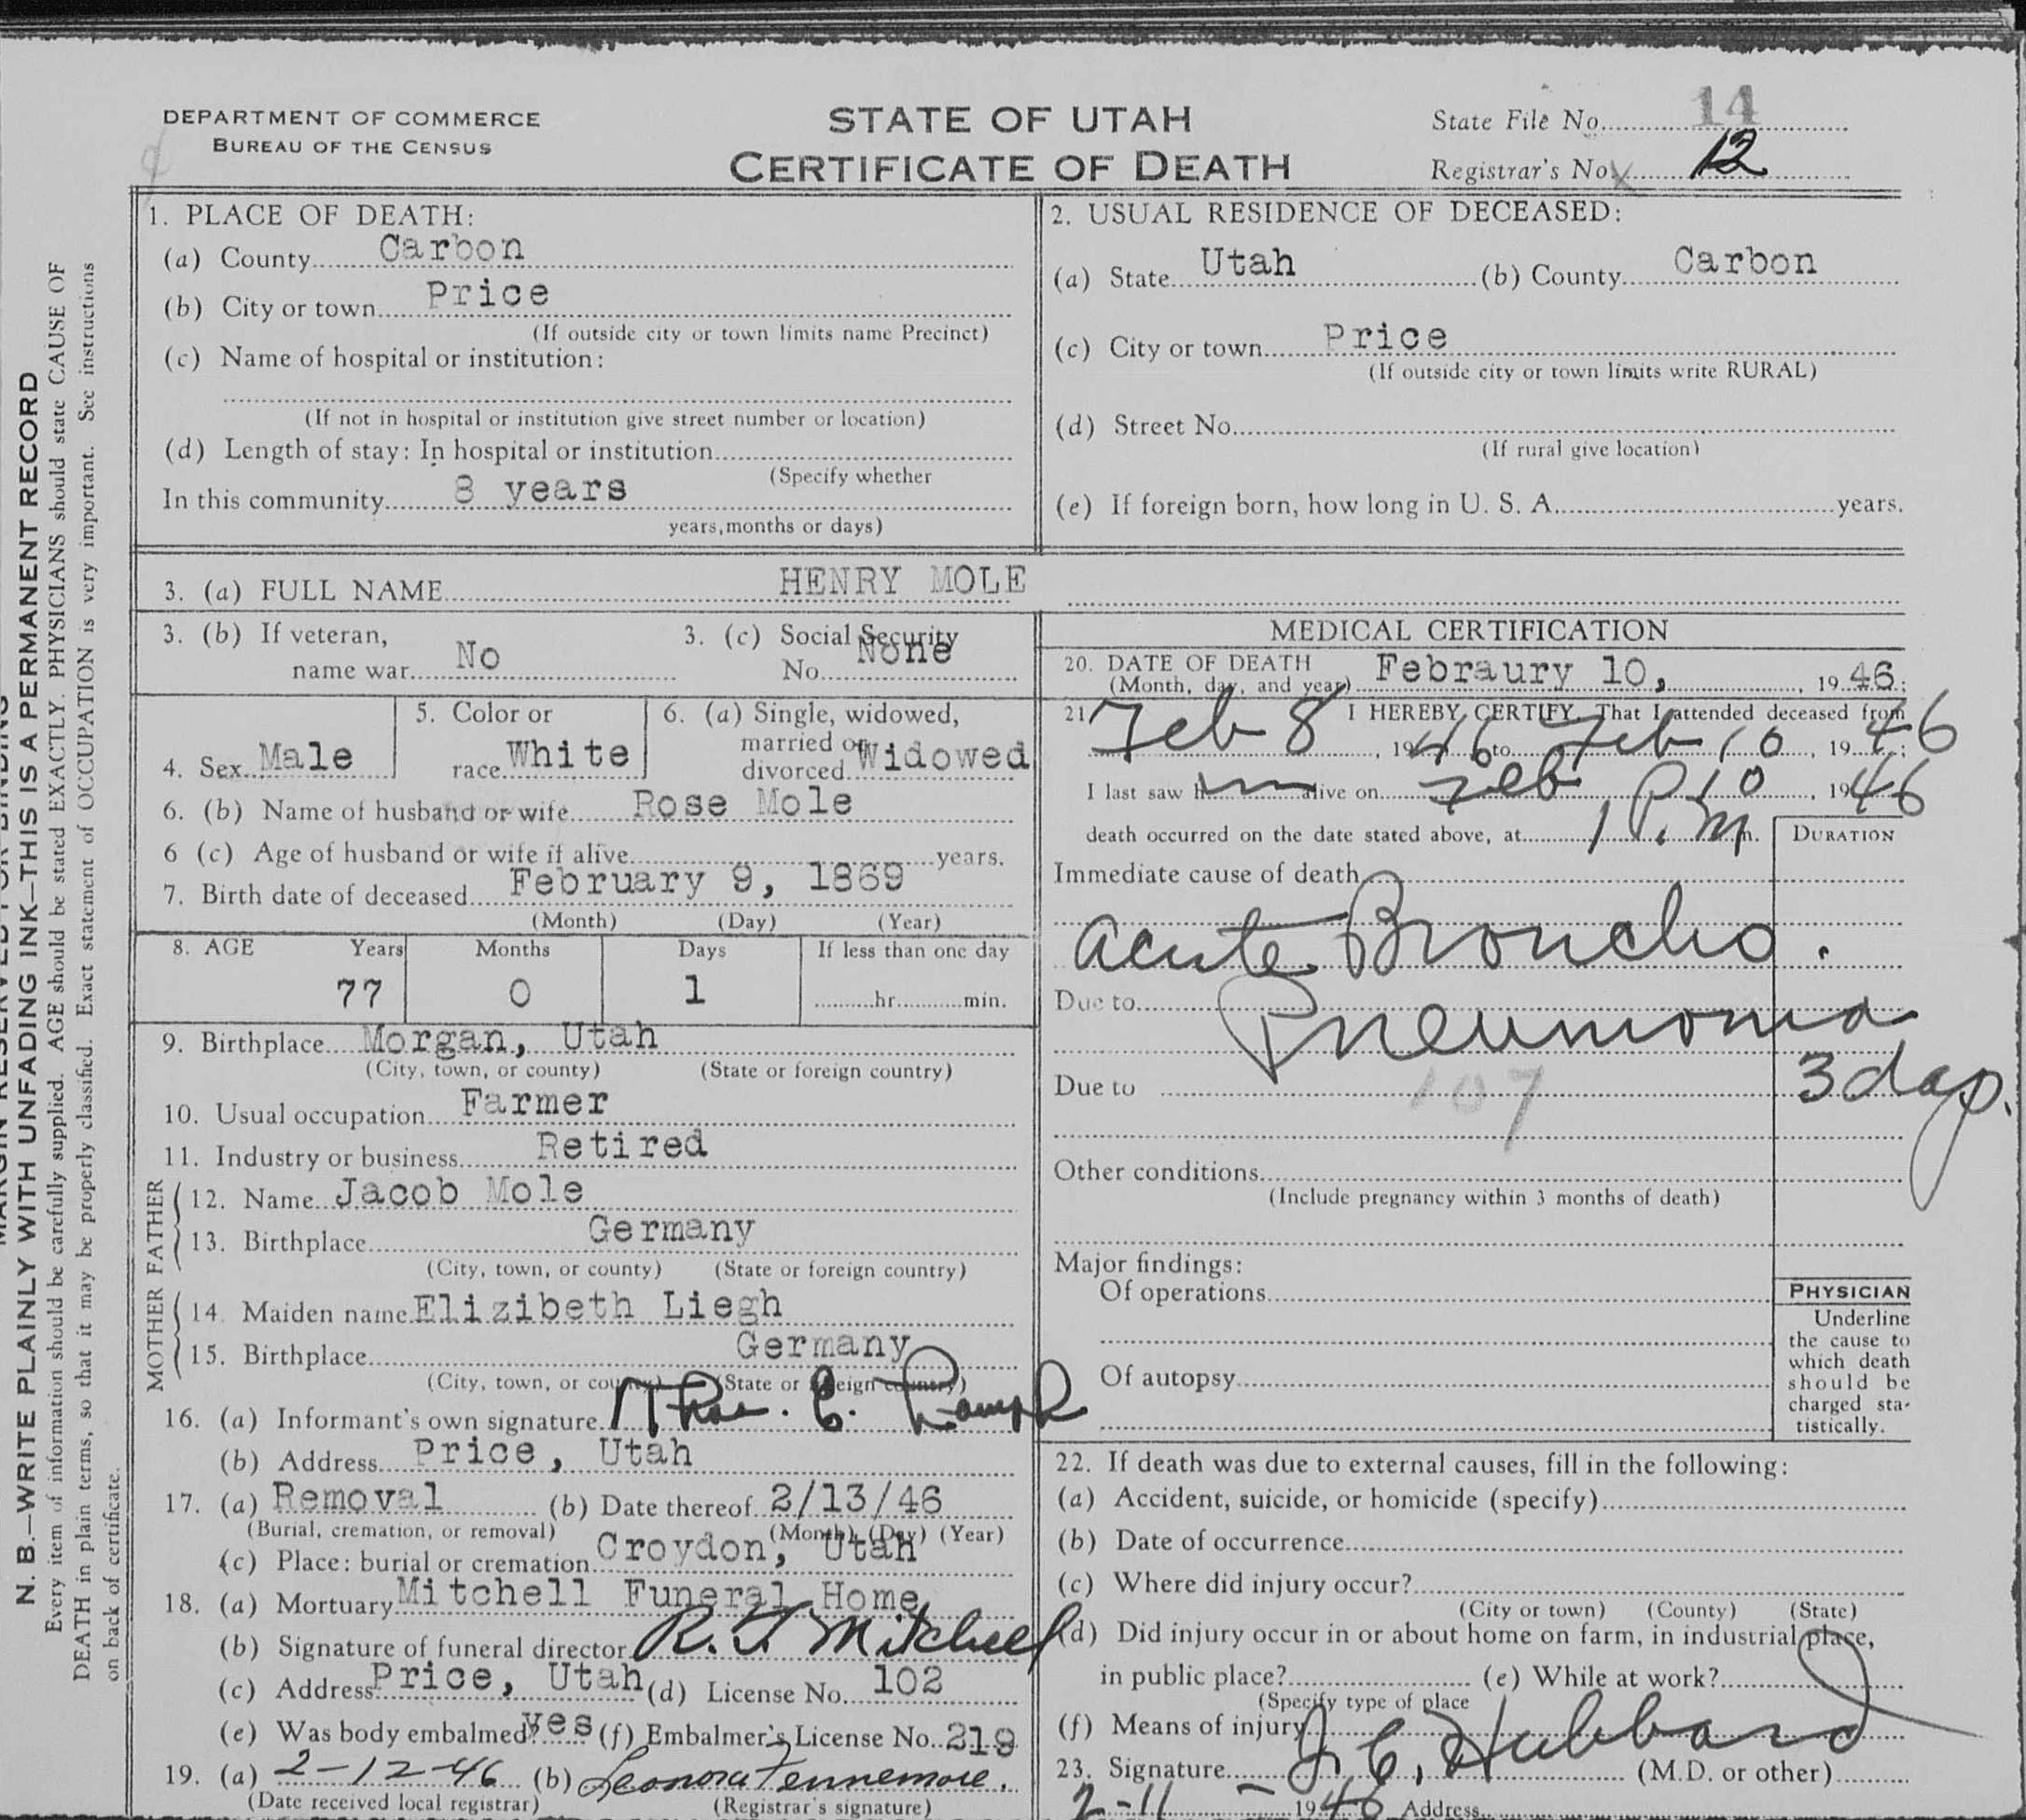 DEPARTMENT OF COMMERCE
BUREAU OF THE CENSUS
STATE OF UTAH
CERTIFICATE OF DEATH
State File No. 14
Registrar's No. 12
N. B.—WRITE PLAINLY WITH UNFADING INK—THIS IS A PERMANENT RECORD
Every item of information should be carefully supplied. AGE should be stated EXACTLY. PHYSICIANS should state CAUSE OF
DEATH in plain terms, so that it may be properly classified. Exact statement of OCCUPATION is very important. See instructions
on back of certificate.
1. PLACE OF DEATH:
(a) County Carbon
(b) City or town Price
(If outside city or town limits name Precinct)
(c) Name of hospital or institution:
(If not in hospital or institution give street number or location)
(d) Length of stay: In hospital or institution
(Specify whether
In this community 8 years
years, months or days)
2. USUAL RESIDENCE OF DECEASED:
(a) State Utah (b) County Carbon
(c) City or town Price
(If outside city or town limits write RURAL)
(d) Street No.
(If rural give location)
(e) If foreign born, how long in U. S. A. years.
3. (a) FULL NAME HENRY MOLE
3. (b) If veteran, name war No
3. (c) Social Security No. None
4. Sex Male
5. Color or race White
6. (a) Single, widowed, married or divorced Widowed
6. (b) Name of husband or wife Rose Mole
6 (c) Age of husband or wife if alive years.
7. Birth date of deceased February 9, 1869
(Month) (Day) (Year)
8. AGE Years Months Days If less than one day
77 0 1 hr. min.
9. Birthplace Morgan, Utah
(City, town, or county) (State or foreign country)
10. Usual occupation Farmer
11. Industry or business Retired
FATHER
12. Name Jacob Mole
13. Birthplace Germany
(City, town, or county) (State or foreign country)
MOTHER
14. Maiden name Elizibeth Liegh
15. Birthplace Germany
(City, town, or county) (State or foreign country)
16. (a) Informant's own signature Thos. E.
(b) Address Price, Utah
17. (a) Removal (b) Date thereof 2/13/46
(Burial, cremation, or removal) (Month) (Day) (Year)
(c) Place: burial or cremation Croydon, Utah
18. (a) Mortuary Mitchell Funeral Home
(b) Signature of funeral director Mitchell
(c) Address Price, Utah (d) License No. 102
(e) Was body embalmed? yes (f) Embalmer's License No. 219
19. (a) 2-12-46 (b) Leonora Fennemore.
(Date received local registrar) (Registrar's signature)
MEDICAL CERTIFICATION
20. DATE OF DEATH
(Month, day, and year) Febraury 10, 19 46;
21. I HEREBY CERTIFY, That I attended deceased from
Feb 8, 19 46 to Feb 10, 19 46;
I last saw h m alive on Feb 10, 19 46
death occurred on the date stated above, at 1 P. M m.
DURATION
Immediate cause of death
Acute Broncho.
Due to Pneumonia
3 days.
Due to 107
Other conditions
(Include pregnancy within 3 months of death)
Major findings:
Of operations
Of autopsy
PHYSICIAN
Underline
the cause to
which death
should be
charged sta-
tistically.
22. If death was due to external causes, fill in the following:
(a) Accident, suicide, or homicide (specify)
(b) Date of occurrence
(c) Where did injury occur?
(City or town) (County) (State)
(d) Did injury occur in or about home on farm, in industrial place,
in public place? (e) While at work?
(Specify type of place
(f) Means of injury
23. Signature J. C. Hubbard (M.D. or other)
2-11- 1946 Address